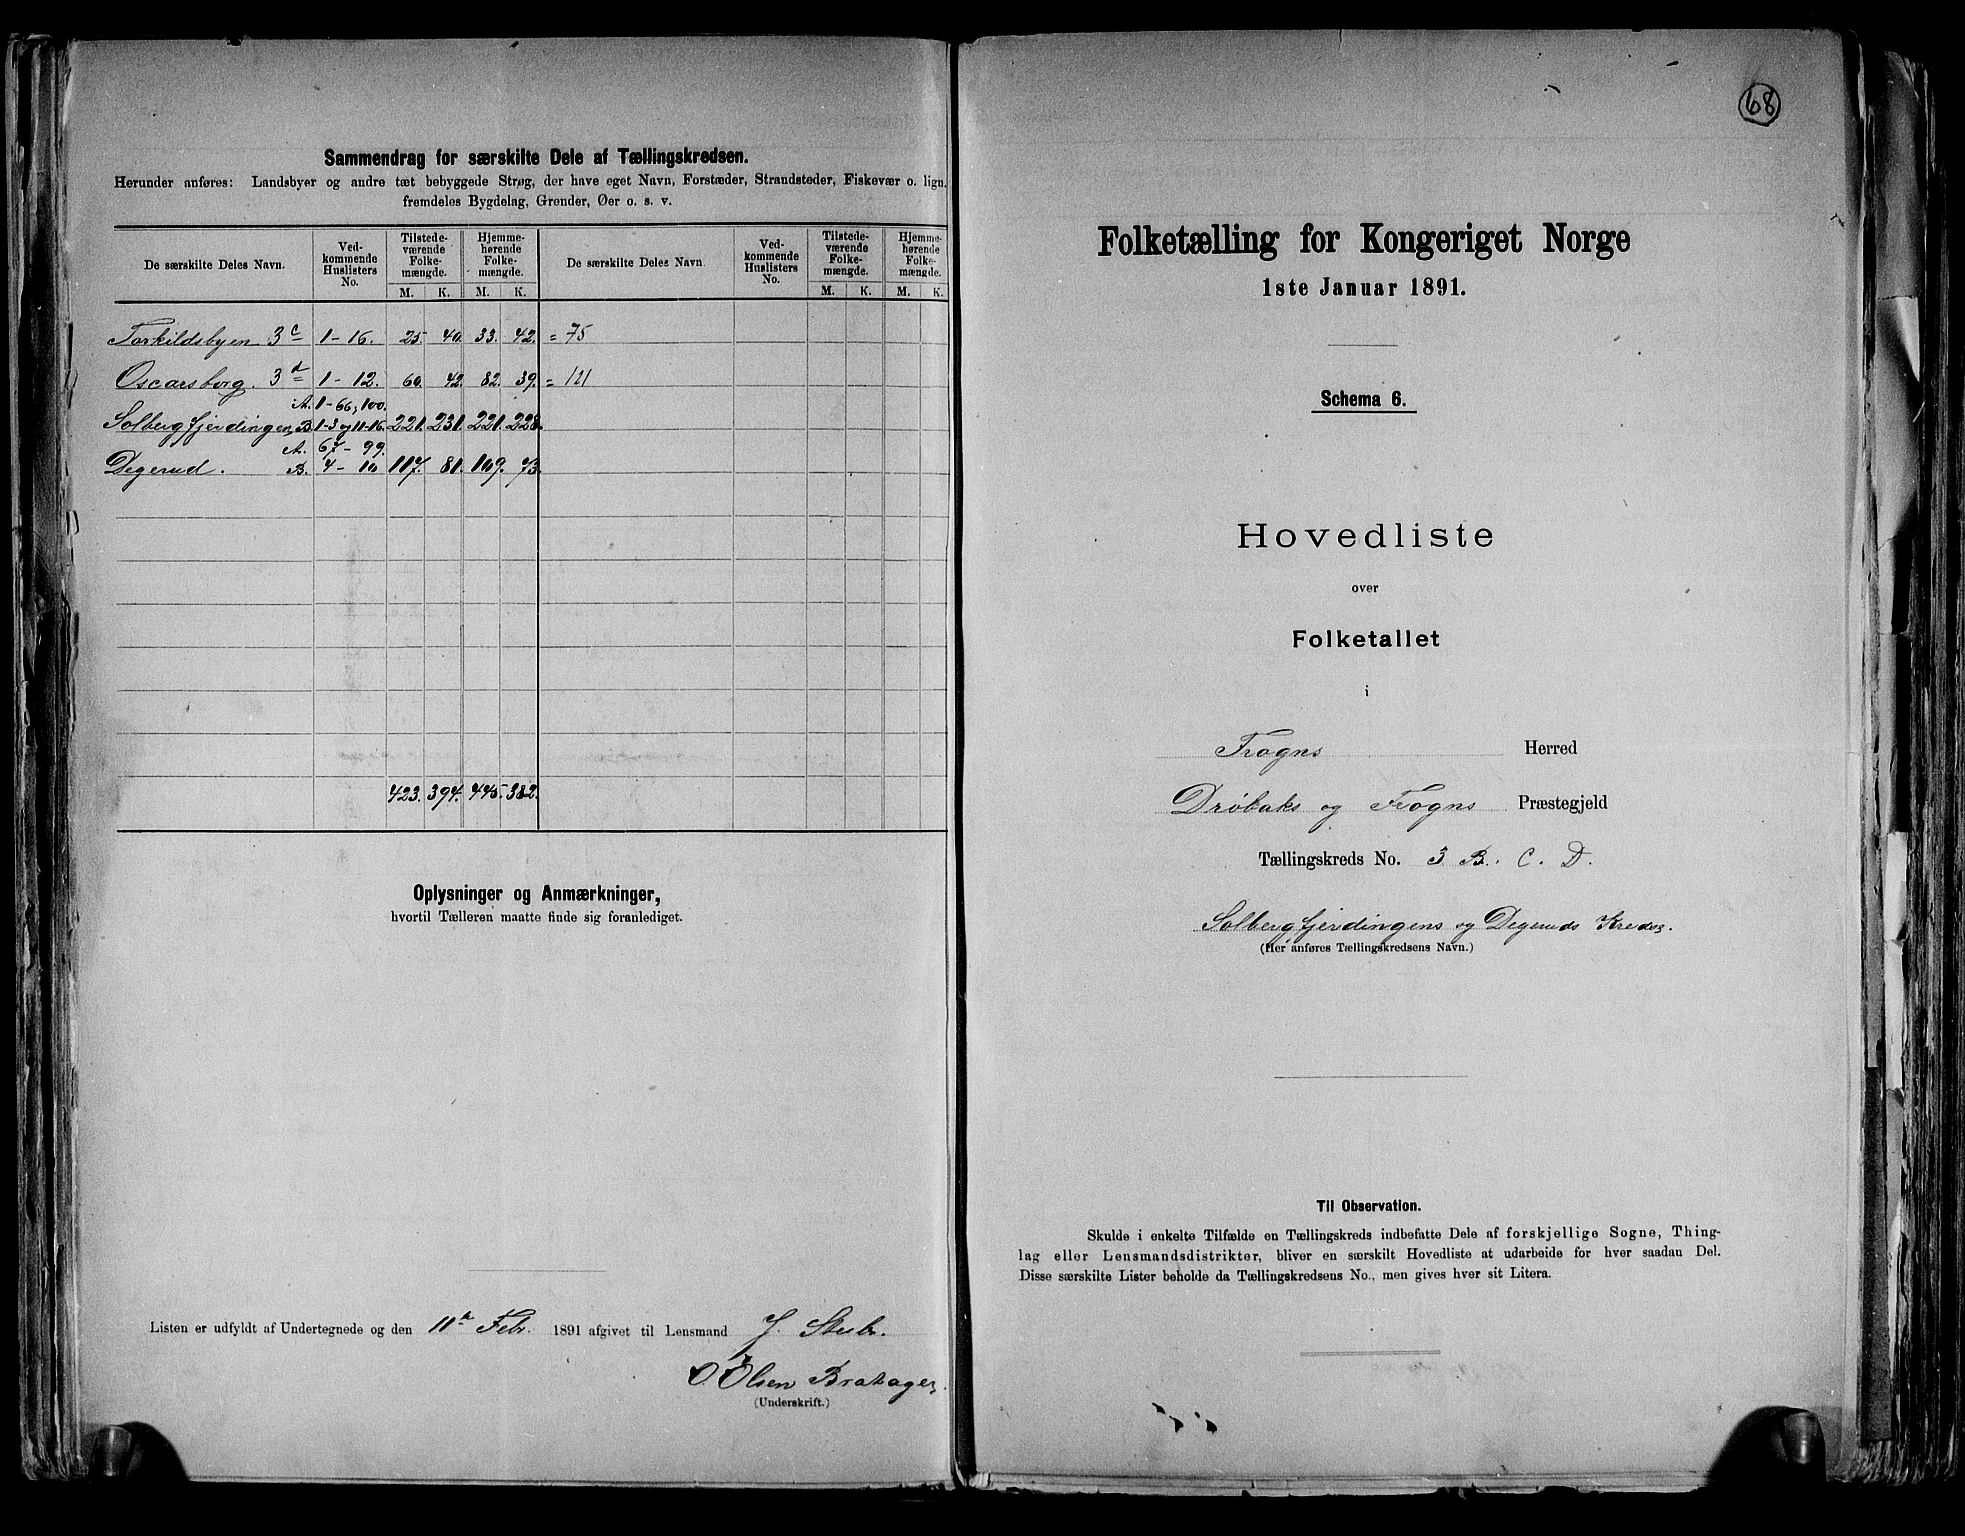 Sammendrag for særskilte Dele af Tællingskredsen.
Herunder anføres: Landsbyer og andre tæt bebyggede Strøg, der have eget Navn, Forstæder, Strandsteder, Fiskevær o. lign.
fremdeles Bygdelag, Grender, Øer o. s. v.
De særskilte Deles Navn. Ved-kommende Huslisters No. Tilstede-værende Folke-mængde. Hjemme-hørende Folke-mængde. De særskilte Deles Navn. Ved-kommende Huslisters No. Tilstede-værende Folke-mængde. Hjemme-hørende Folke-mængde.
M. K. M. K. M. K. M. K.
Torkildsbyen 3c 1-16. 25. 40. 33. 42. = 75
Oscarsborg. 3d 1-12. 60. 42. 82. 39. = 121
A. 1-66, 100.
Solbergfjerdingen, B. 1-3 og 11-16. 221. 231. 221. 228.
A. 67-99.
Degerud. B. 4-10 117. 81. 109. 73.
423. 394. 445. 382.
Oplysninger og Anmærkninger,
hvortil Tælleren maatte finde sig foranlediget.
Listen er udfyldt af Undertegnede og den 11te Febr. 1891 afgivet til Lensmand J. Stub.
O Olsen Bratager.
(Underskrift.)
68
Folketælling for Kongeriget Norge
1ste Januar 1891.
Schema 6.
Hovedliste
over
Folketallet
i
Frogns Herred
Drøbaks og Frogns Præstegjeld
Tællingskreds No. 3 B. C. D.
Solbergfjerdingens og Degeruds Kreds.
(Her anføres Tællingskredsens Navn.)
Til Observation.
Skulde i enkelte Tilfælde en Tællingskreds indbefatte Dele af forskjellige Sogne, Thing-
lag eller Lensmandsdistrikter, bliver en særskilt Hovedliste at udarbeide for hver saadan Del.
Disse særskilte Lister beholde da Tællingskredsens No., men gives hver sit Litera.